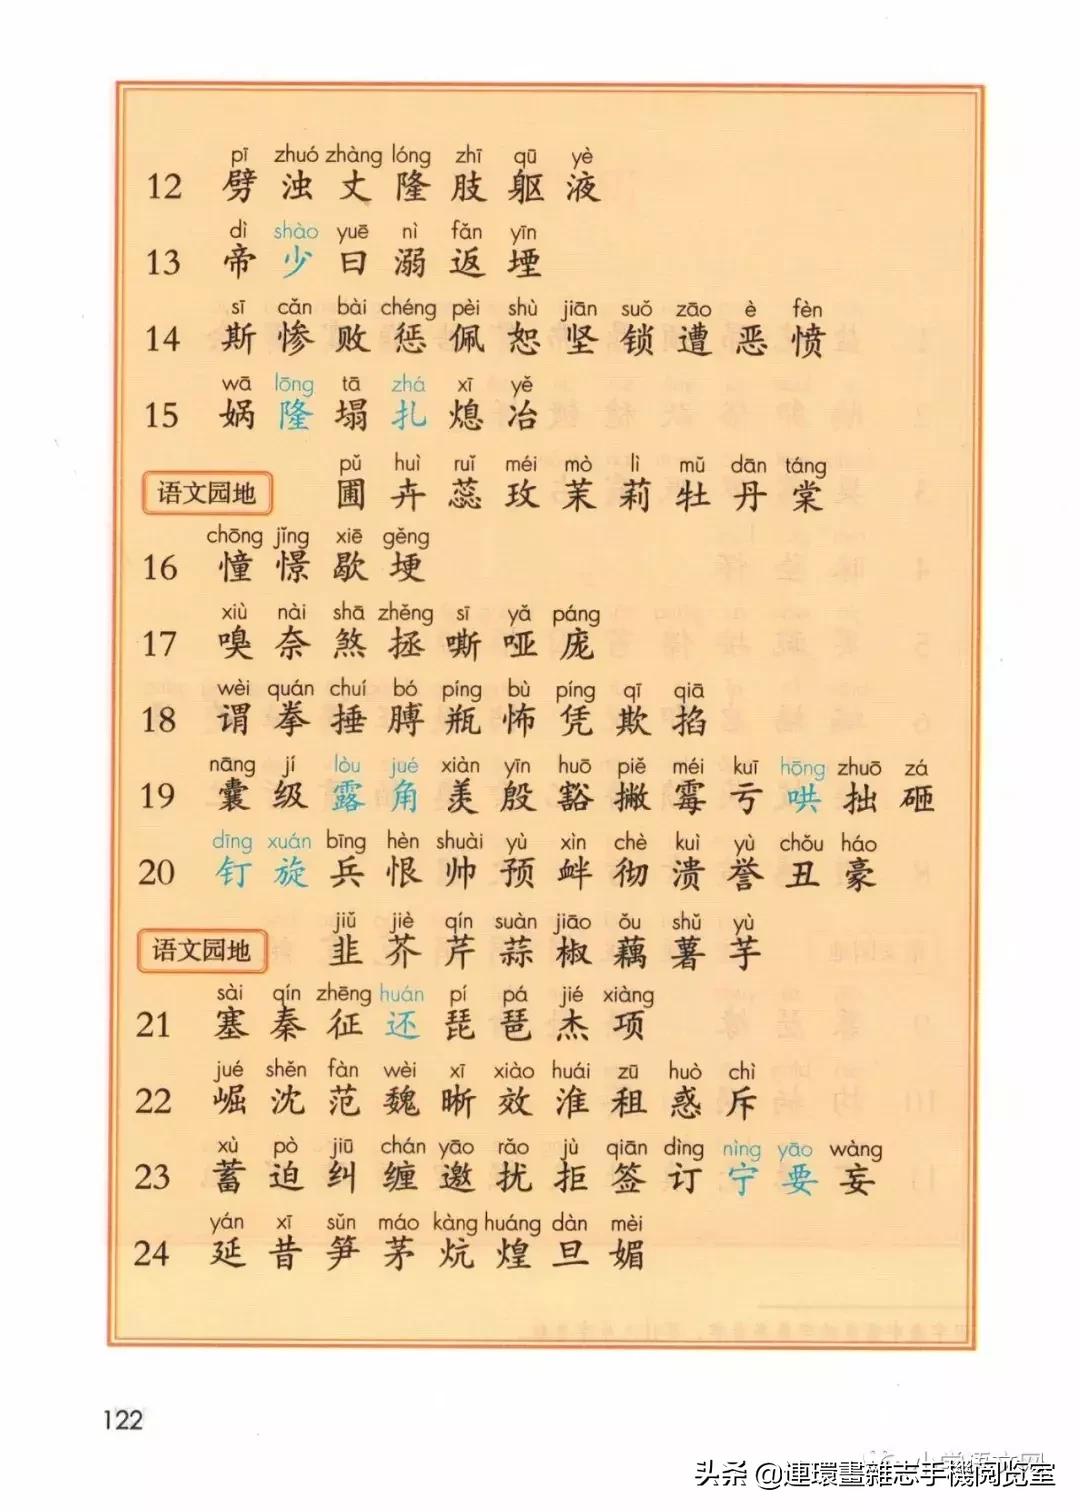 pī zhuó zhàng lóng zhī qū yè
12 劈 浊 丈 隆 肢 躯 液
dì shào yuē nì fǎn yīn
13 帝 少 曰 溺 返 堙
sī cǎn bài chéng pèi shù jiān suǒ zāo è fèn
14 斯 惨 败 惩 佩 恕 坚 锁 遭 恶 愤
wā lōng tā zhá xī yě
15 娲 隆 塌 扎 熄 冶
pǔ huì ruǐ méi mò lì mǔ dān táng
语文园地 圃 卉 蕊 玫 茉 莉 牡 丹 棠
chōng jǐng xiē gěng
16 憧 憬 歇 埂
xiù nài shā zhěng sī yǎ páng
17 嗅 奈 煞 拯 嘶 哑 庞
wèi quán chuí bó píng bù píng qī qiā
18 谓 拳 捶 膊 瓶 怖 凭 欺 掐
nāng jí lòu jué xiàn yīn huō piě méi kuī hōng zhuō zá
19 囊 级 露 角 羡 殷 豁 撇 霉 亏 哄 拙 砸
dīng xuán bīng hèn shuài yù xìn chè kuì yù chǒu háo
20 钉 旋 兵 恨 帅 预 衅 彻 溃 誉 丑 豪
jiǔ jiè qín suàn jiāo ǒu shǔ yù
语文园地 韭 芥 芹 蒜 椒 藕 薯 芋
sài qín zhēng huán pí pá jié xiàng
21 塞 秦 征 还 琵 琶 杰 项
jué shěn fàn wèi xī xiào huái zū huò chì
22 崛 沈 范 魏 晰 效 淮 租 惑 斥
xù pò jiū chán yāo rǎo jù qiān dìng nìng yāo wàng
23 蓄 迫 纠 缠 邀 扰 拒 签 订 宁 要 妄
yán xī sǔn máo kàng huáng dàn mèi
24 延 昔 笋 茅 炕 煌 旦 媚
122
小学语文网
头条 @連環畫雜志手機阅览室